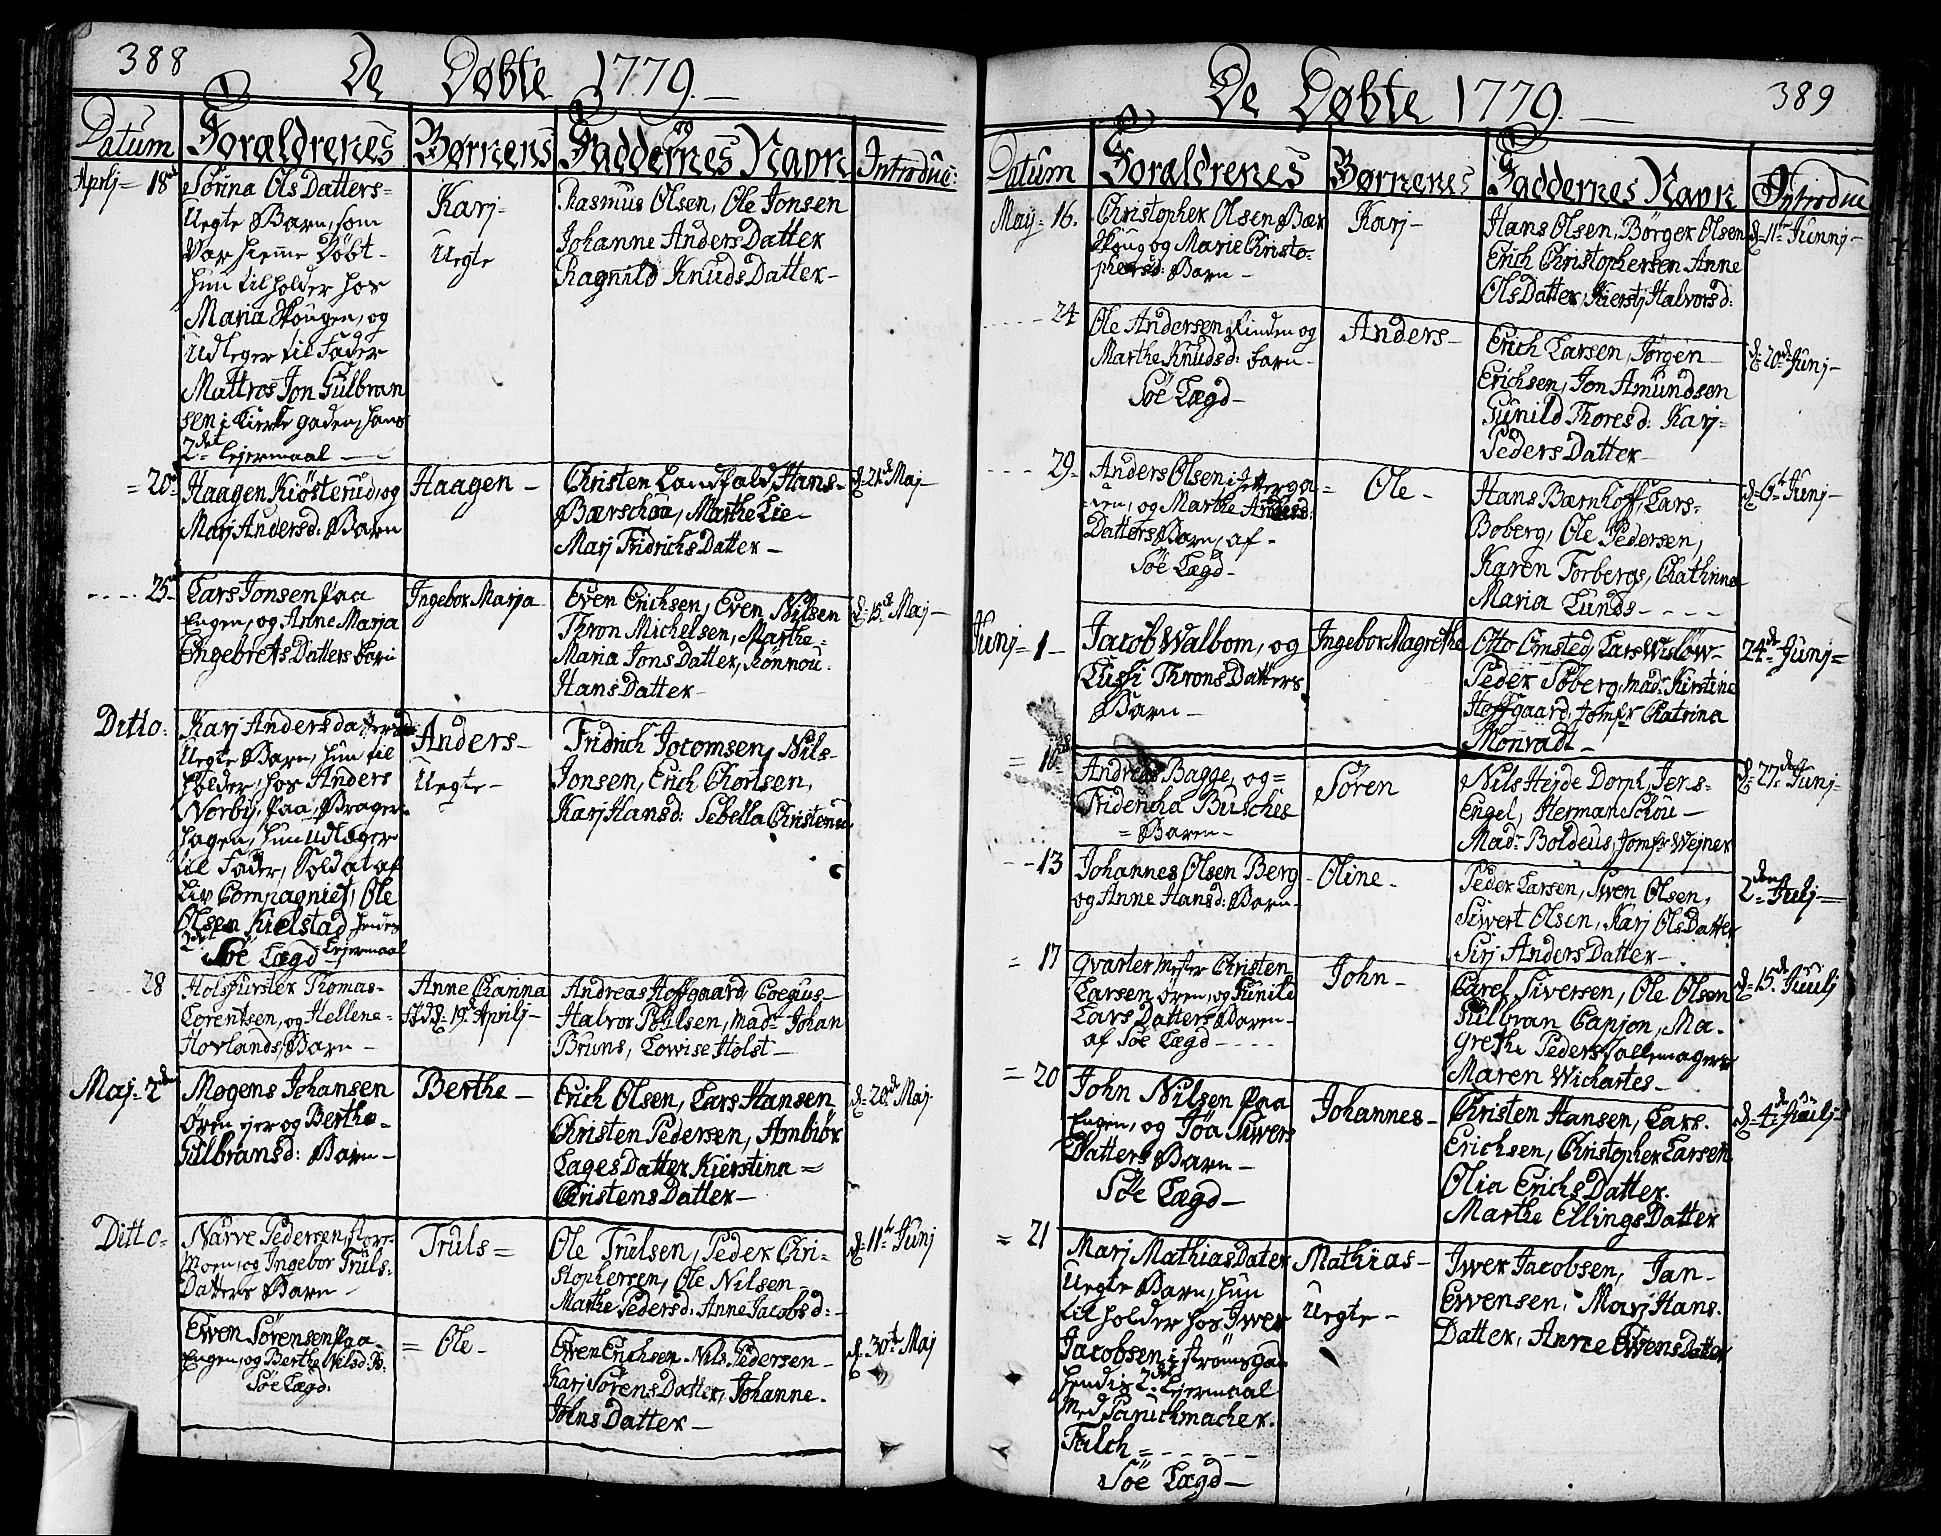 388
De Døbte 1779.
Datum Forældrenes Børnens Faddernes Navn Introduc:
Aprlj = 18
Sørina Ols Datters =
Uegte Barn, som
var hieme Døbt -
hun tilholder hos
Maria Skougen, og
Udleger til Fader
Mattros Jon Gulbran
sen i Kirke gaden, hans
2det Lejermaal
Karj =
Uegte
Rasmus Olsen, Ole Jonsen
Johanne Anders Datter
Ragnild Knuds Datter -
= 20
Haagen Kiøsterud, og
Marj Andersd: Barn
Haagen -
Christen Landfald, Hans =
Bærschou, Marthe Lie -
Marj Fridrichs Datter -
d= 21 Maj -
.... 25
Lars Jonsen paa
Engen, og Anne Marja
Engebrets Datters barn
Ingebor Marja
Even Erichsen, Even Nilsen
Thron Michelsen, Marthe =
Maria Jons Datter, Rønnou.
Hans Datter -
d= 15 Maj -
Ditto.
Karj Andersdatters
Uegte Barn, hun til
holder, hos Anders
Norby, paa Brager
hagen, hun udlæger
til Fader, Soldat af
Liv Compagniet, Ole
Olsen Kielstad hendes
2det Lejermaal
Søe Lægd
Anders -
Uegte -
Fridrich Jocomsen, Nils -
Jonsen, Erich Chorlsen,
Karj Hansd: Sebella Christens
28
Thomas =
Lorentsen, og Hellene =
Hovlands, Barn -
Anne Charina
19 Aprilj -
Andreas Hoffgaard, Coegius -
Halvor Poulsen, Mad: Johan
Bruns, Lowise Holst -
Maj = 2den
Møgens Johansen
Ørenejer og Berthe =
Gulbransd: Barn -
Berthe -
Erich Olsen, Lars Hansen
Christen Pedersen, Ambiør
Lages Datter Kierstina =
Christens Datter -
d= 20 Maj
Ditto -
Narve Pedersen Store
Moen, og Ingebor Truls =
Datters Barn -
Truls =
Ole Trulsen, Peder Chri -
stophersen, Ole Nilsen -
Marthe Pedersd: Anne Jacobsd: -
d= 11 Junj
Ewen Sørensen paa
Engen, og Berthe Nilsd: B.
Søe Lægd.
= Ole -
Ewen Erichsen. Nils Pedersen -
Karj Sørens Datter, Johanne.
Johns Datter -
d. 30 Maj
389
De Døbte 1779.
Datum Forældrenes Børnenes Faddernes Navn Introduc
Maij = 16.
Christopher Olsen Bær
Skoug og Marie Christo =
phersd: Barn -
Karj -
Hans Olsen, Børger Olsen
Erich Christophersen Anne
Ols Datter, Kierstj Halvorsd:
d= 11 Junnj -
.... 24
Ole Andersen Kinden og
Marthe Knudsd: barn -
Søe Lægd -
Anders -
Erich Larsen, Jørgen -
Erichsen, Jon Amundsen
Gunild Thoresd: Karj =
Peders Datter -
d= 20 Junj -
.... 29 -
Anders Olsen i
og Marthe Anders:
Datters Barn, af -
Søe Lægd -
= Ole -
Hans Bærnhoff, Lars =
Boberg, Ole Pedersen,
Karen Forbergs, Chathrina
Maria Lunds - - - -
d= 6 Junj -
Junj = 1 -
Jacob Walbom, og
Lissi Throns Datters
Barn -
Ingebor Magrethe
Otto Omsted, Lars Wisløw -
Peder Soberg, Mad: Kirstine
Hoffgaard, Jomfr Chatrina
Monradt -
24 Junj =
= 10
Andreas Bagge, og =
Fridericha Busches
= Barn -
Søren
Nils Hejde Dorph, Jens =
Engel, Herman Schou -
Mad: Boldeus, Jomfr Wejner
d= 27 Junj -
- - - 13
Johannes Olsen Berg
og Anne Hansd: Barn -
- Oline -
Peder Larsen, Swen Olsen,
Siwert Olsen, Karj Ols Datter
Sirj Anders Datter -
2den Julj =
= 17
Qvartermester Christen
Larsen Øren, og Gunild
Lars Datters Baren -
af Søe Lægd - - - -
John -
Carel Siversen, Ole Olsen
Gulbran Capjon, Ma -
grethe Peders
Maren Wichartes -
d= 15 Juulj
= 20
John Nilsen paa
Engen, og Jøa Siwers
Datters Barn -
Søe Lægd -
Johannes -
Christen Hansen, Lars.
Erichsen, Christopher Larsen
Olia Erichs Datter.
Marthe Ellings Datter
d= 4 Juulj -
= 21
Marj Mathias Dater
Uegte Barn, hun
til holder hos Iwer
Jacobsen i Strømsga
hendis 2det Lejermaal
Med Paruchmacher.
Falch = - - - -
Søe Lægd -
Mathias -
Uegte -
Iwer Jacobsen, Jan -
Ewensen, Marj Hans.
Datter, Anne Ewens Datter